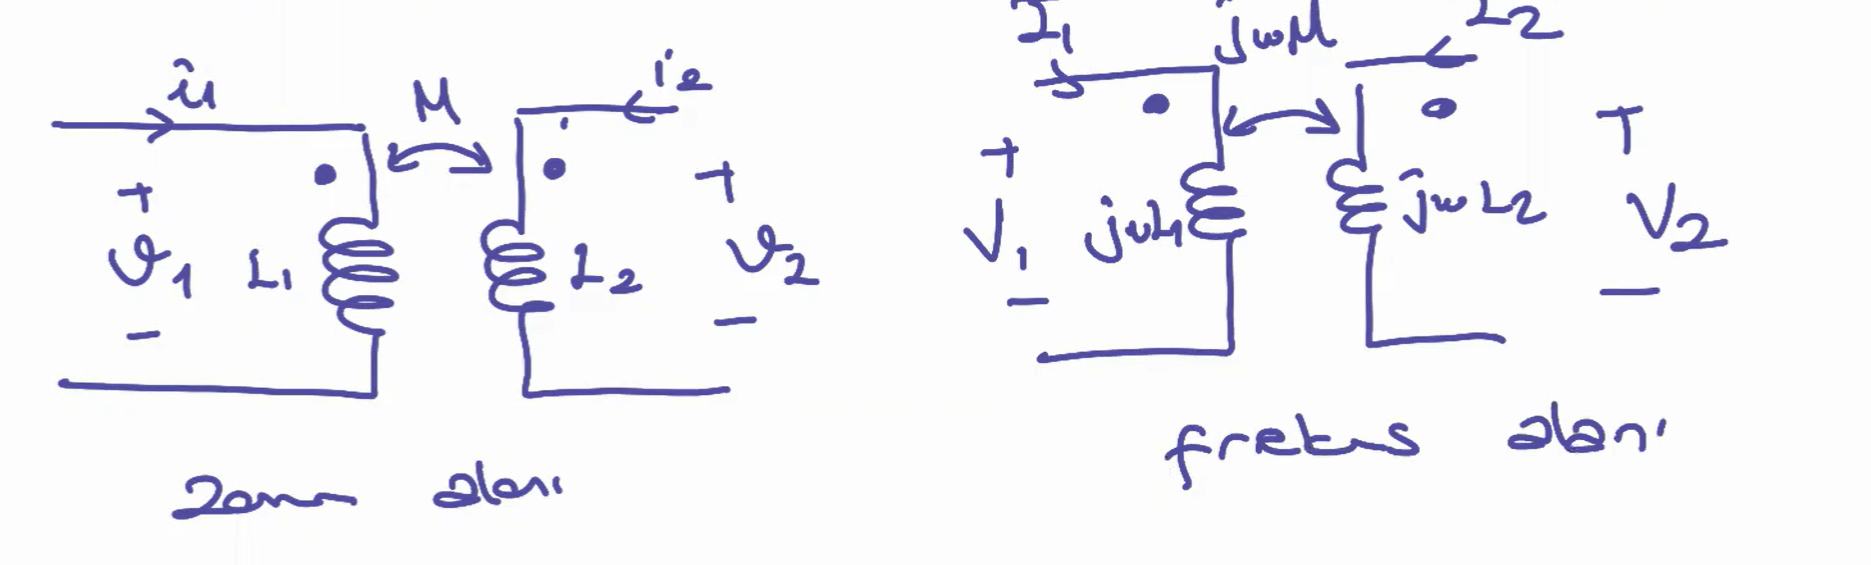 i1
M
i2
+
v1
-
L1
L2
+
v2
-
zaman alanı
I1
jwM
I2
+
V1
-
jwL1
jwL2
+
V2
-
frekans alanı